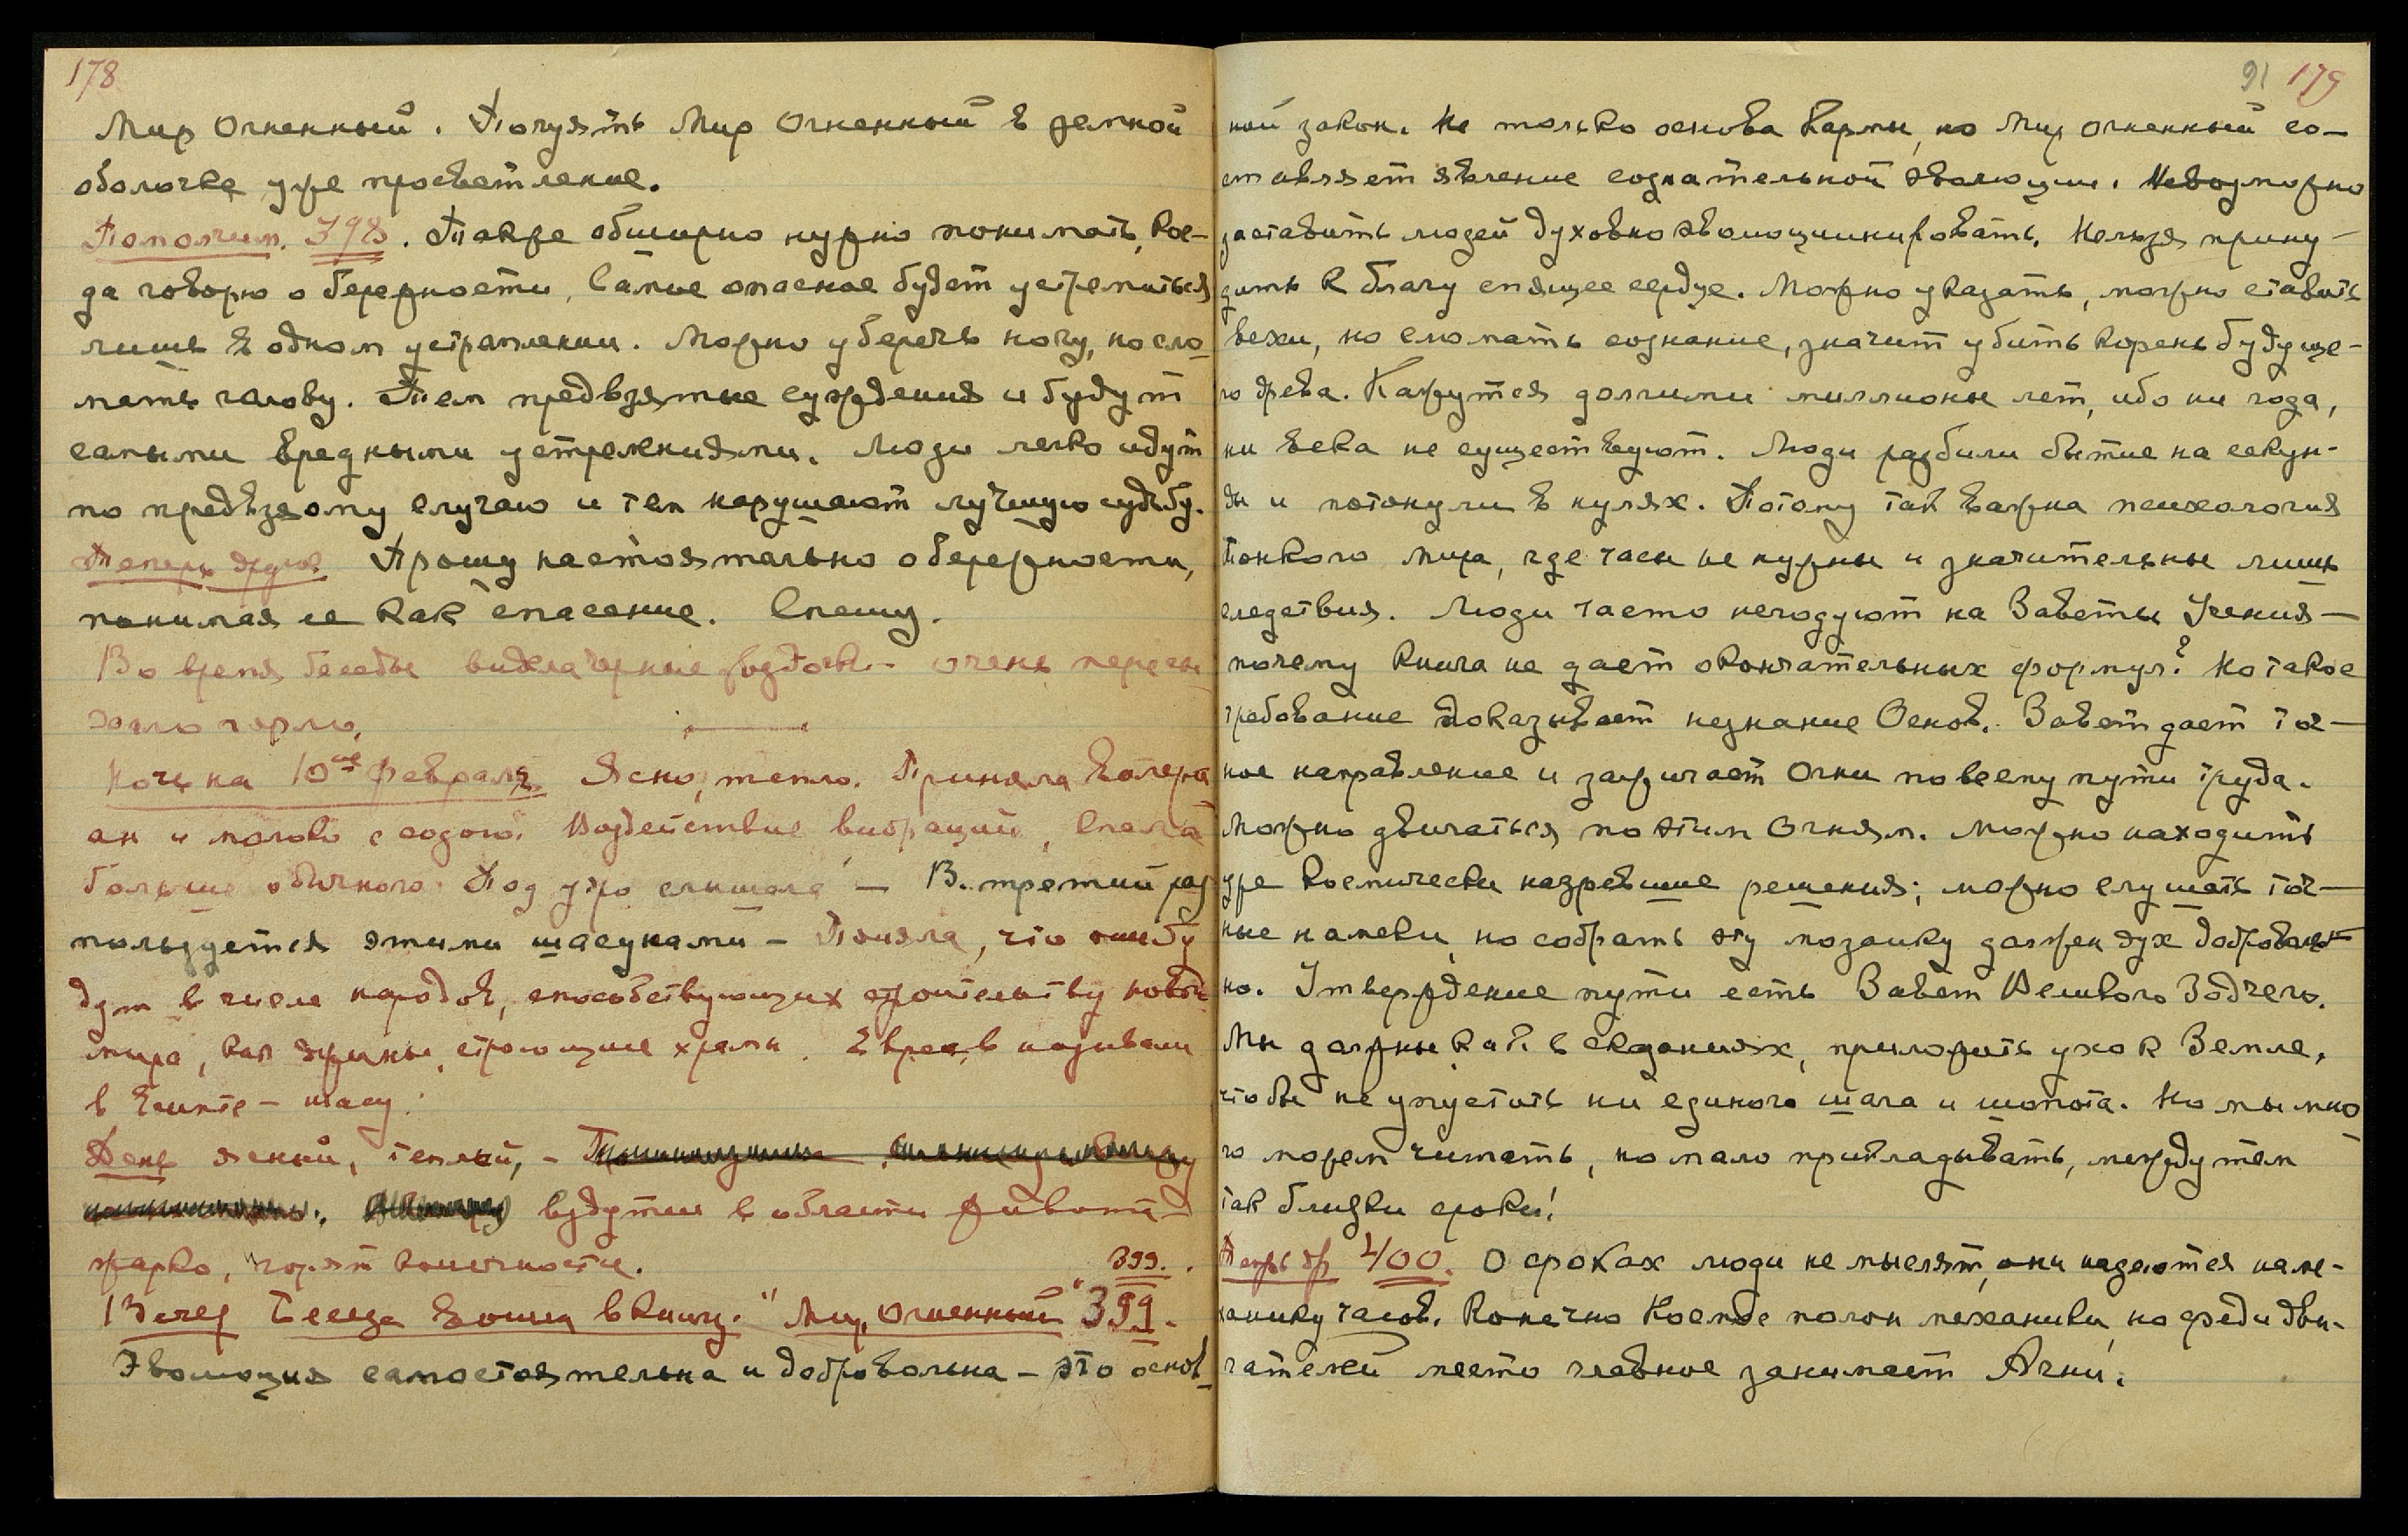 178
Мир Огненный. Почуять Мир Огненный в земной
оболочке уже просветление.
Пополчим. 398. Также обширно нужно понимать, ког-
да говорю о бережности. Самое опасное будет устремиться
лишь в одном устремлении. Можно уберечь ногу, но сло-
мать голову. Тем предвзятые суждения и будут
самыми вредными устремлениями. Люди легко идут
по предвзятому случаю и тем нарушают лучшую судьбу.
Теперь другое Прошу настоятельно о бережности,
понимая ее как спасение. Спешу.
Во время беседы видела черные звездочки - очень пересы-
хало горло.
Ночь на 10ое Февраля Ясно, тепло. Приняла Валери-
ан и молоко с содою. Воздействие вибраций, Спала
больше обычного. Под утро слышала - В третий раз
пользуется этими шасуками - Поняла, что они бу-
дут в числе народов, способствующих строительству нового
мира, как строющие храмы. Евреев называли
в Египте - шасу.
День ясный, теплый, -
вздутие в области живота
жарко, горят конечности.
399.
Вечер Беседа Вошла в книгу. "Мир Огненный" 399.
Эволюция самостоятельна и добровольна - это основ-
91 179
ной закон. Не только основа Кармы, но Мир Огненный со-
ставляет явление сознательной эволюции. Невозможно
заставить людей духовно эволюционировать. Нельзя прину-
дить к благу спящее сердце. Можно указать, можно ставить
вехи, но сломать сознание, значит убить корень будуще-
го древа. Кажутся долгими миллионы лет, ибо ни года,
ни века не существуют. Люди разбили бытие на секун-
ды и потонули в нулях. Потому так важна психология
Тонкого Мира, где часы не нужны и значительны лишь
следствия. Люди часто негодуют на Заветы Учения -
почему книга не дает окончательных формул? Но такое
требование доказывает незнание Основ. Завет дает точ-
ное направление и зажигает Огни по всему пути труда.
Можно двигаться по этим Огням. Можно находить
уже космически назревшие решения; можно слушать точ-
ные намеки, но собрать эту мозаику должен дух доброволь-
но. Утверждение пути есть Завет Великого Зодчего.
Мы должны, как в сказаниях, приложить ухо к Земле,
чтобы не упустить ни единого шага и шопота. Но мы мно-
го можем читать, но мало прикладывать, между тем
так близки сроки!
400. О сроках люди не мыслят, они надеются на ме-
ханику часов. Конечно Космос полон механики, но среди дви-
гателей место главное занимает Агни.